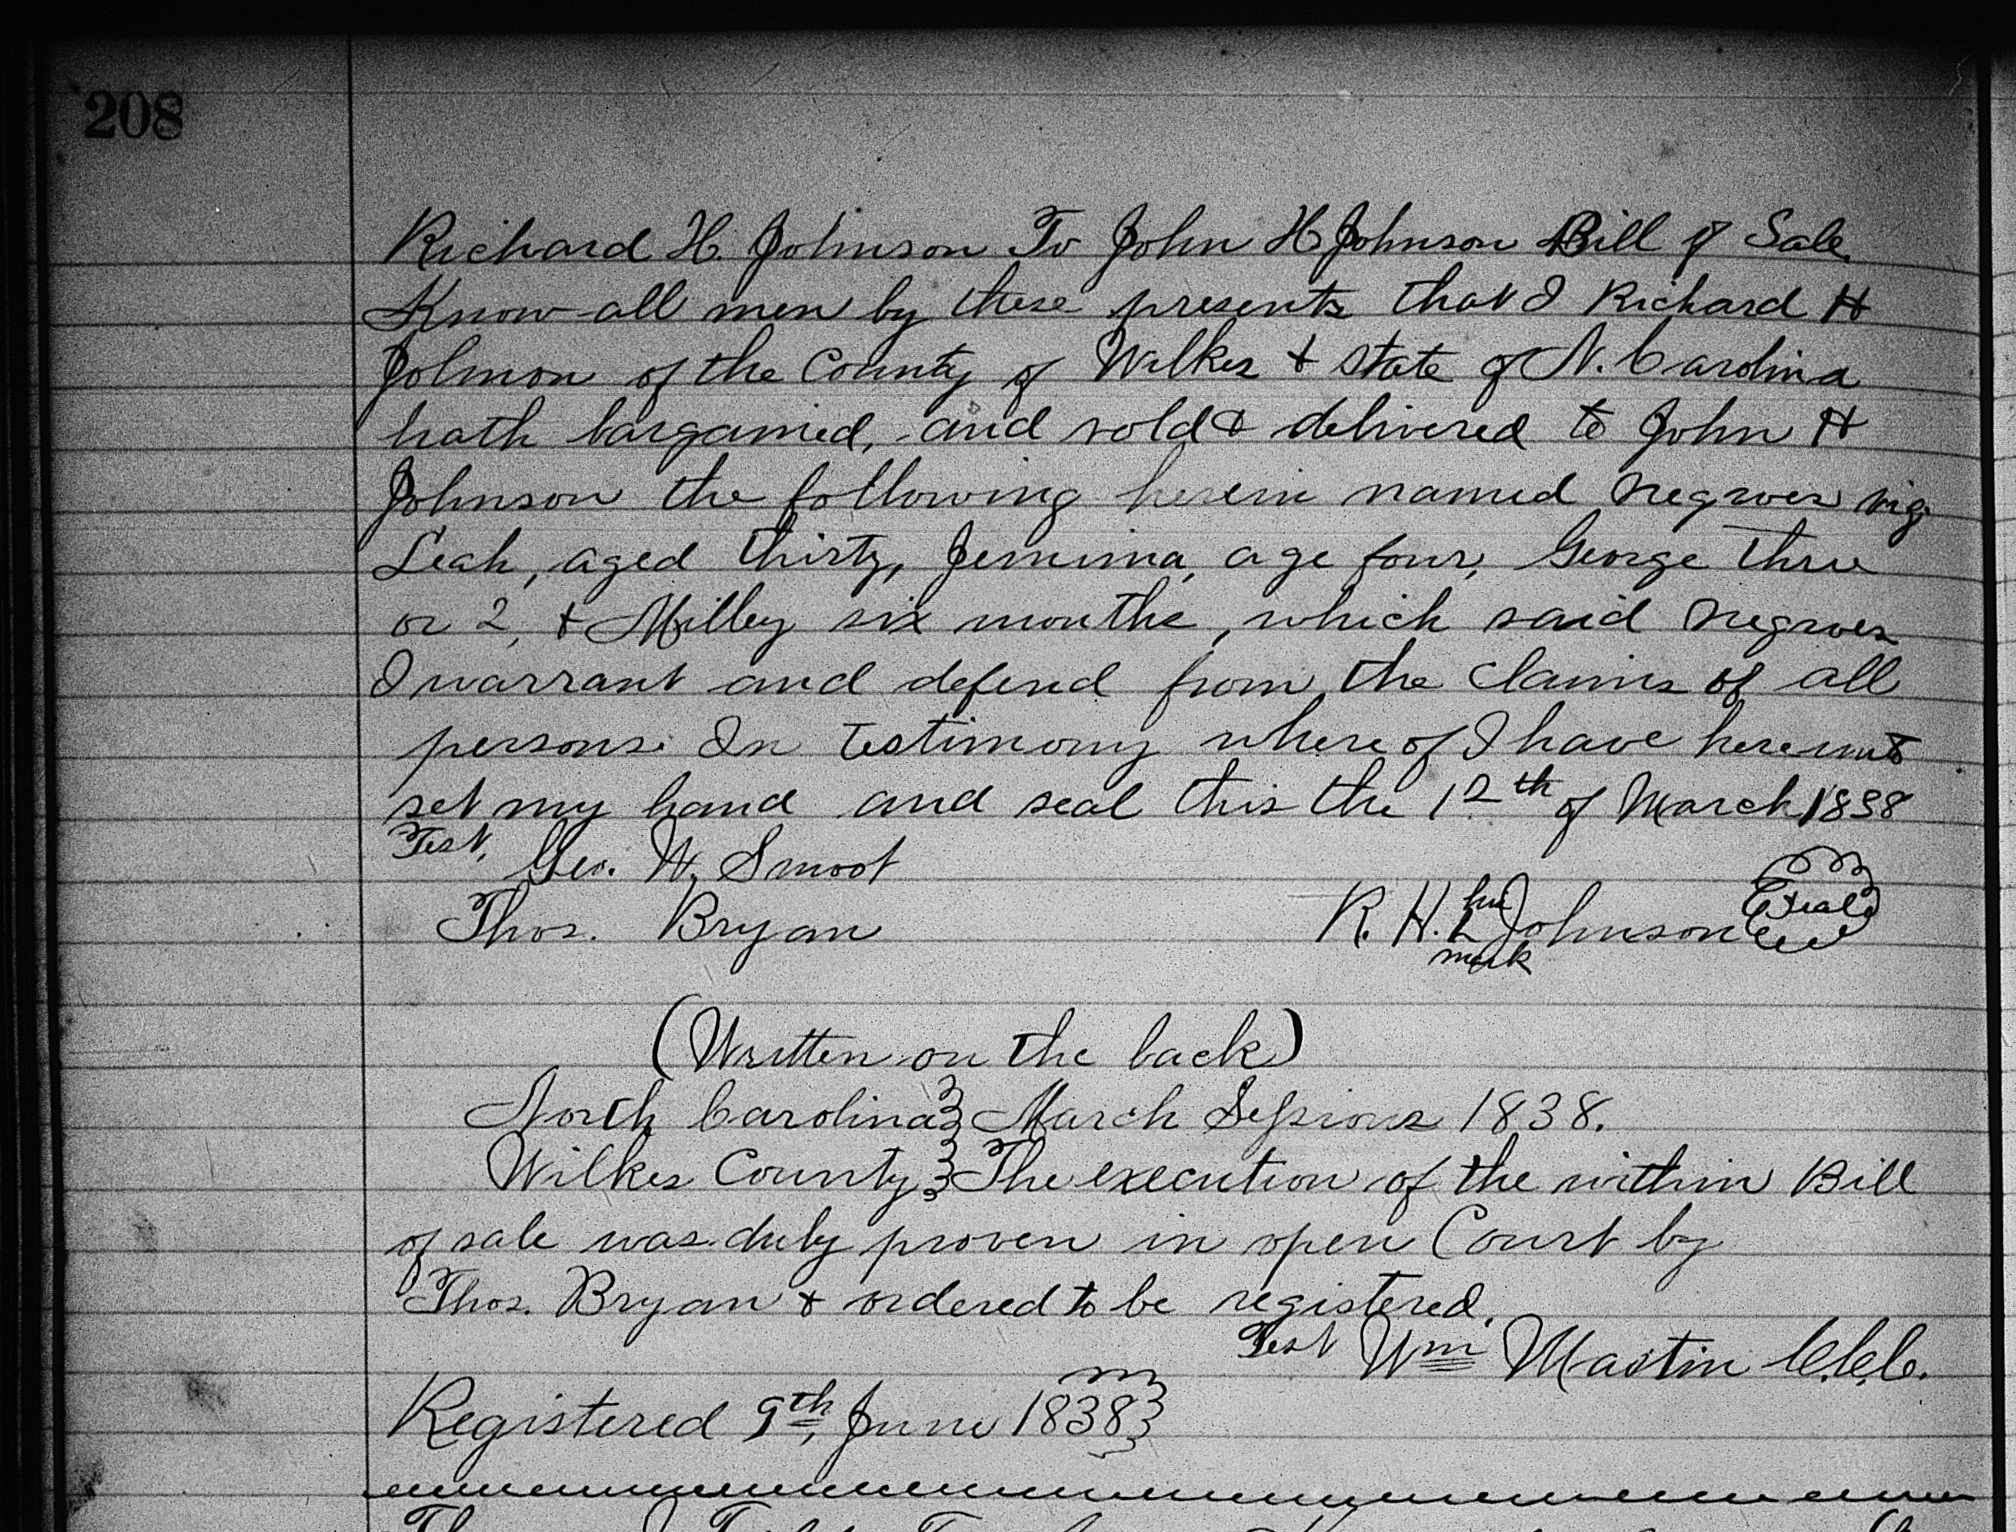 208
Richard H. Johnson To John H Johnson Bill of Sale.
Know all men by these presents that I Richard H
Johnson of the County of Wilkes & state of N. Carolina
hath bargained, and sold & delivered to John H
Johnson the following herein named negroes viz
Leah, aged thirty, Jemima, age four, George three
or 2, & Milley six months, which said negroes
I warrant and defend from the claims of all
persons. In Testimony where of I have here unto
set my hand and seal this the 12th of March 1838
Test. Geo. W. Smoot
Thos. Bryan R. H. his mark Johnson Seal
(Written on the back)
North Carolina } March Sessions 1838.
Wilkes County } The execution of the within Bill
of sale was duly proven in open Court by
Thos. Bryan & ordered to be registered.
Test Wm Mastin C.C.C.
Registered 9th, June 1838